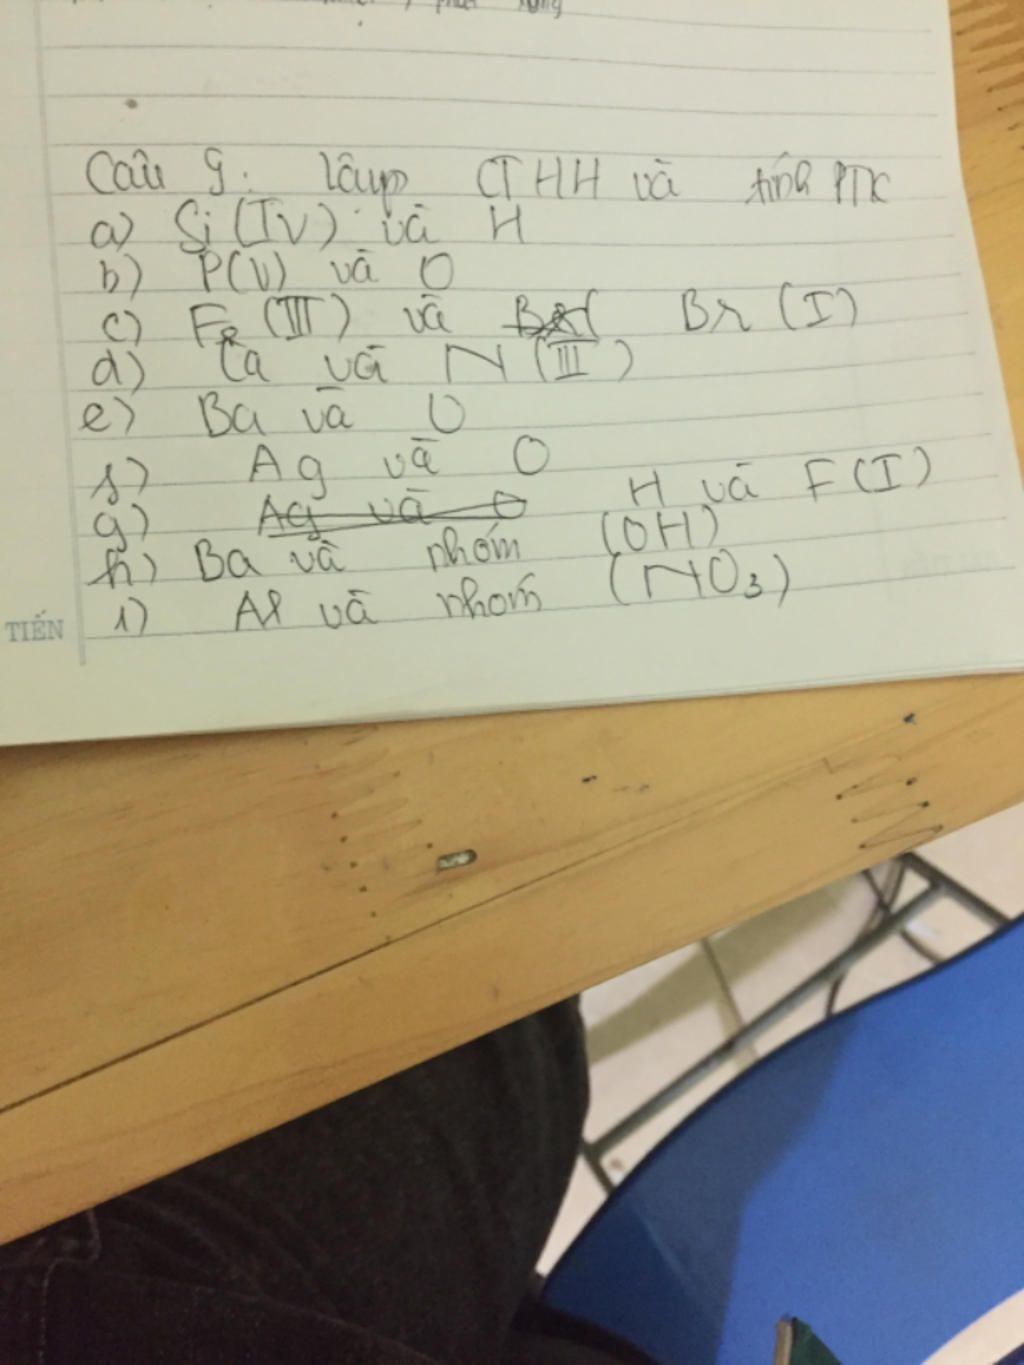 Câu 9: lập CTHH và tính PTK
a) Si (IV) và H
b) P(V) và O
c) Fe (III) và Br (I)
d) Ca và N (III)
e) Ba và O
f) Ag và O
g) Ag và O H và F (I)
h) Ba và nhóm (OH)
i) Al và nhóm (NO3)
TIẾN